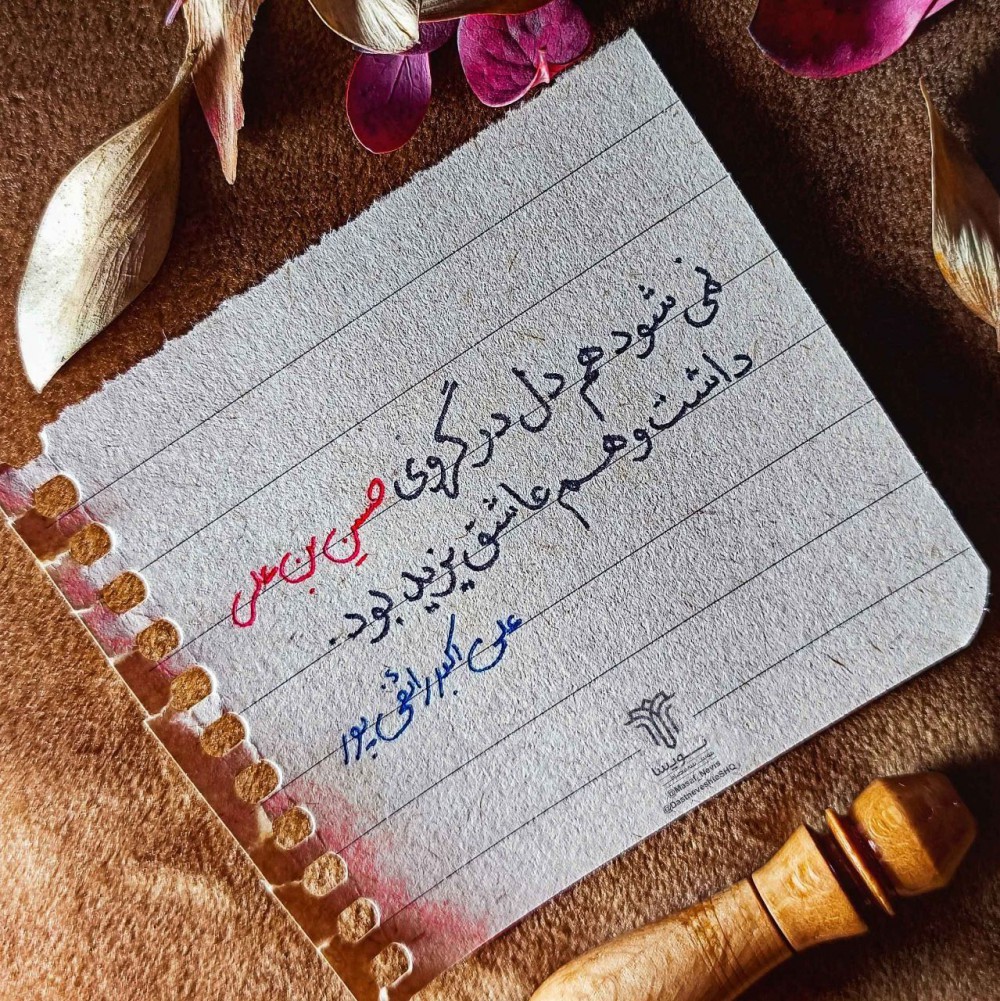 نمی شود هم دل در گروی حسین بن علی
داشت و هم عاشق یزید بود..
علی اکبر رائفی پور
نویسا
@Masaf_Nevis
@DastneveshteSHQ